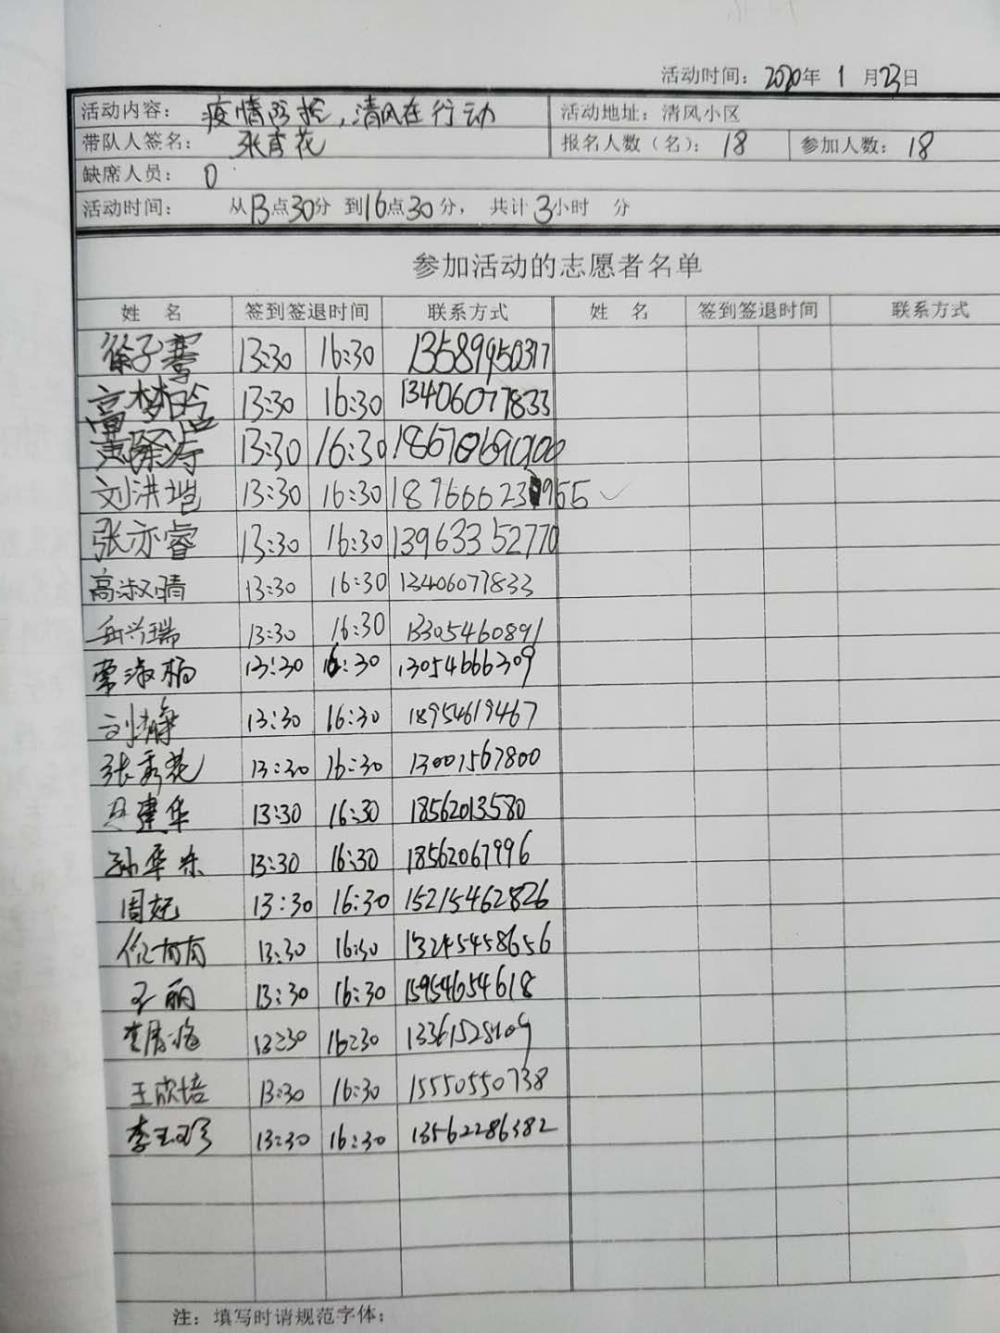 活动时间：2020年 1 月23日
活动内容：疫情防控，清风在行动 活动地址：清风小区
带队人签名：张秀花 报名人数（名）：18 参加人数：18
缺席人员：0
活动时间： 从13点30分 到16点30分， 共计3小时 分
参加活动的志愿者名单
姓 名 签到签退时间 联系方式 姓 名 签到签退时间 联系方式
徐子骞 13:30 16:30 13589950317
高梦晗 13:30 16:30 13406077833
黄隆涛 13:30 16:30
刘洪垲 13:30 16:30
张亦睿 13:30 16:30 13963352770
高淑晴 13:30 16:30 13406077833
岳兴瑞 13:30 16:30 13305460891
常淑梅 13:30 16:30 13054666309
刘静 13:30 16:30 18954619467
张秀花 13:30 16:30 13001567800
建华 13:30 16:30 18562013580
孙华东 13:30 16:30 18562067996
周妮 13:30 16:30 15215462826
13:30 16:30 13245458656
王丽 13:30 16:30 15954654618
13:30 16:30
王欣培 13:30 16:30 15550550738
李玉珍 13:30 16:30 13562286382
注：填写时请规范字体；